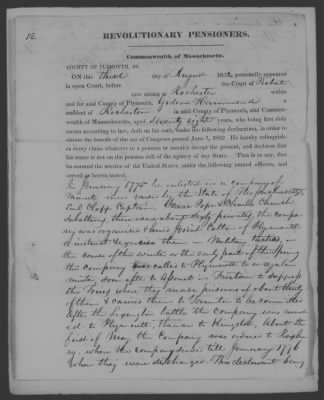 12
REVOLUTIONARY PENSIONERS.
Commonwealth of Massachusetts.
COUNTY OF PLYMOUTH, SS
ON this third day of August 1832, personally appeared
in open Court, before the Court of Probate
now sitting at Rochester within
and for said County of Plymouth, Gideon Hammond a
resident of Rochester in said County of Plymouth, and Common-
wealth of Massachusetts, aged Seventy eight years, who being first duly
sworn according to law, doth on his oath, make the following declaration, in order to
obtain the benefit of the act of Congress passed June 7, 1832. He hereby relinquish-
es every claim whatever to a pension or annuity except the present, and declares that
his name is not on the pension roll of the agency of any State. That is to say, that
he entered the service of the United States under the following named officers, and
served as herein stated.
In January 1775 he enlisted in a company of
minute men raised by the State of Massachusetts,
Earl Clapp Captain, Isaac Pope & Charles Church
subalterns, there were along sixty privates, the compa-
ny was organized & hired Cotton of Plymouth
to instruct & exercise them in Military tactics, in
the course of the winter or the early part of the spring
the Company was called to Plymouth to a regular
muster, soon after to Assonet in Freetown to suppress
the Tories where they made prisoners of about thirty
of them & carried them to Taunton to be committed
After the Lexington battle the Company was march-
ed to Plymouth, thence to Kingston, About the
first of May the Company was ordered to Roxbu-
ry, where the company served till January 1776
when they were discharged. This declarant being